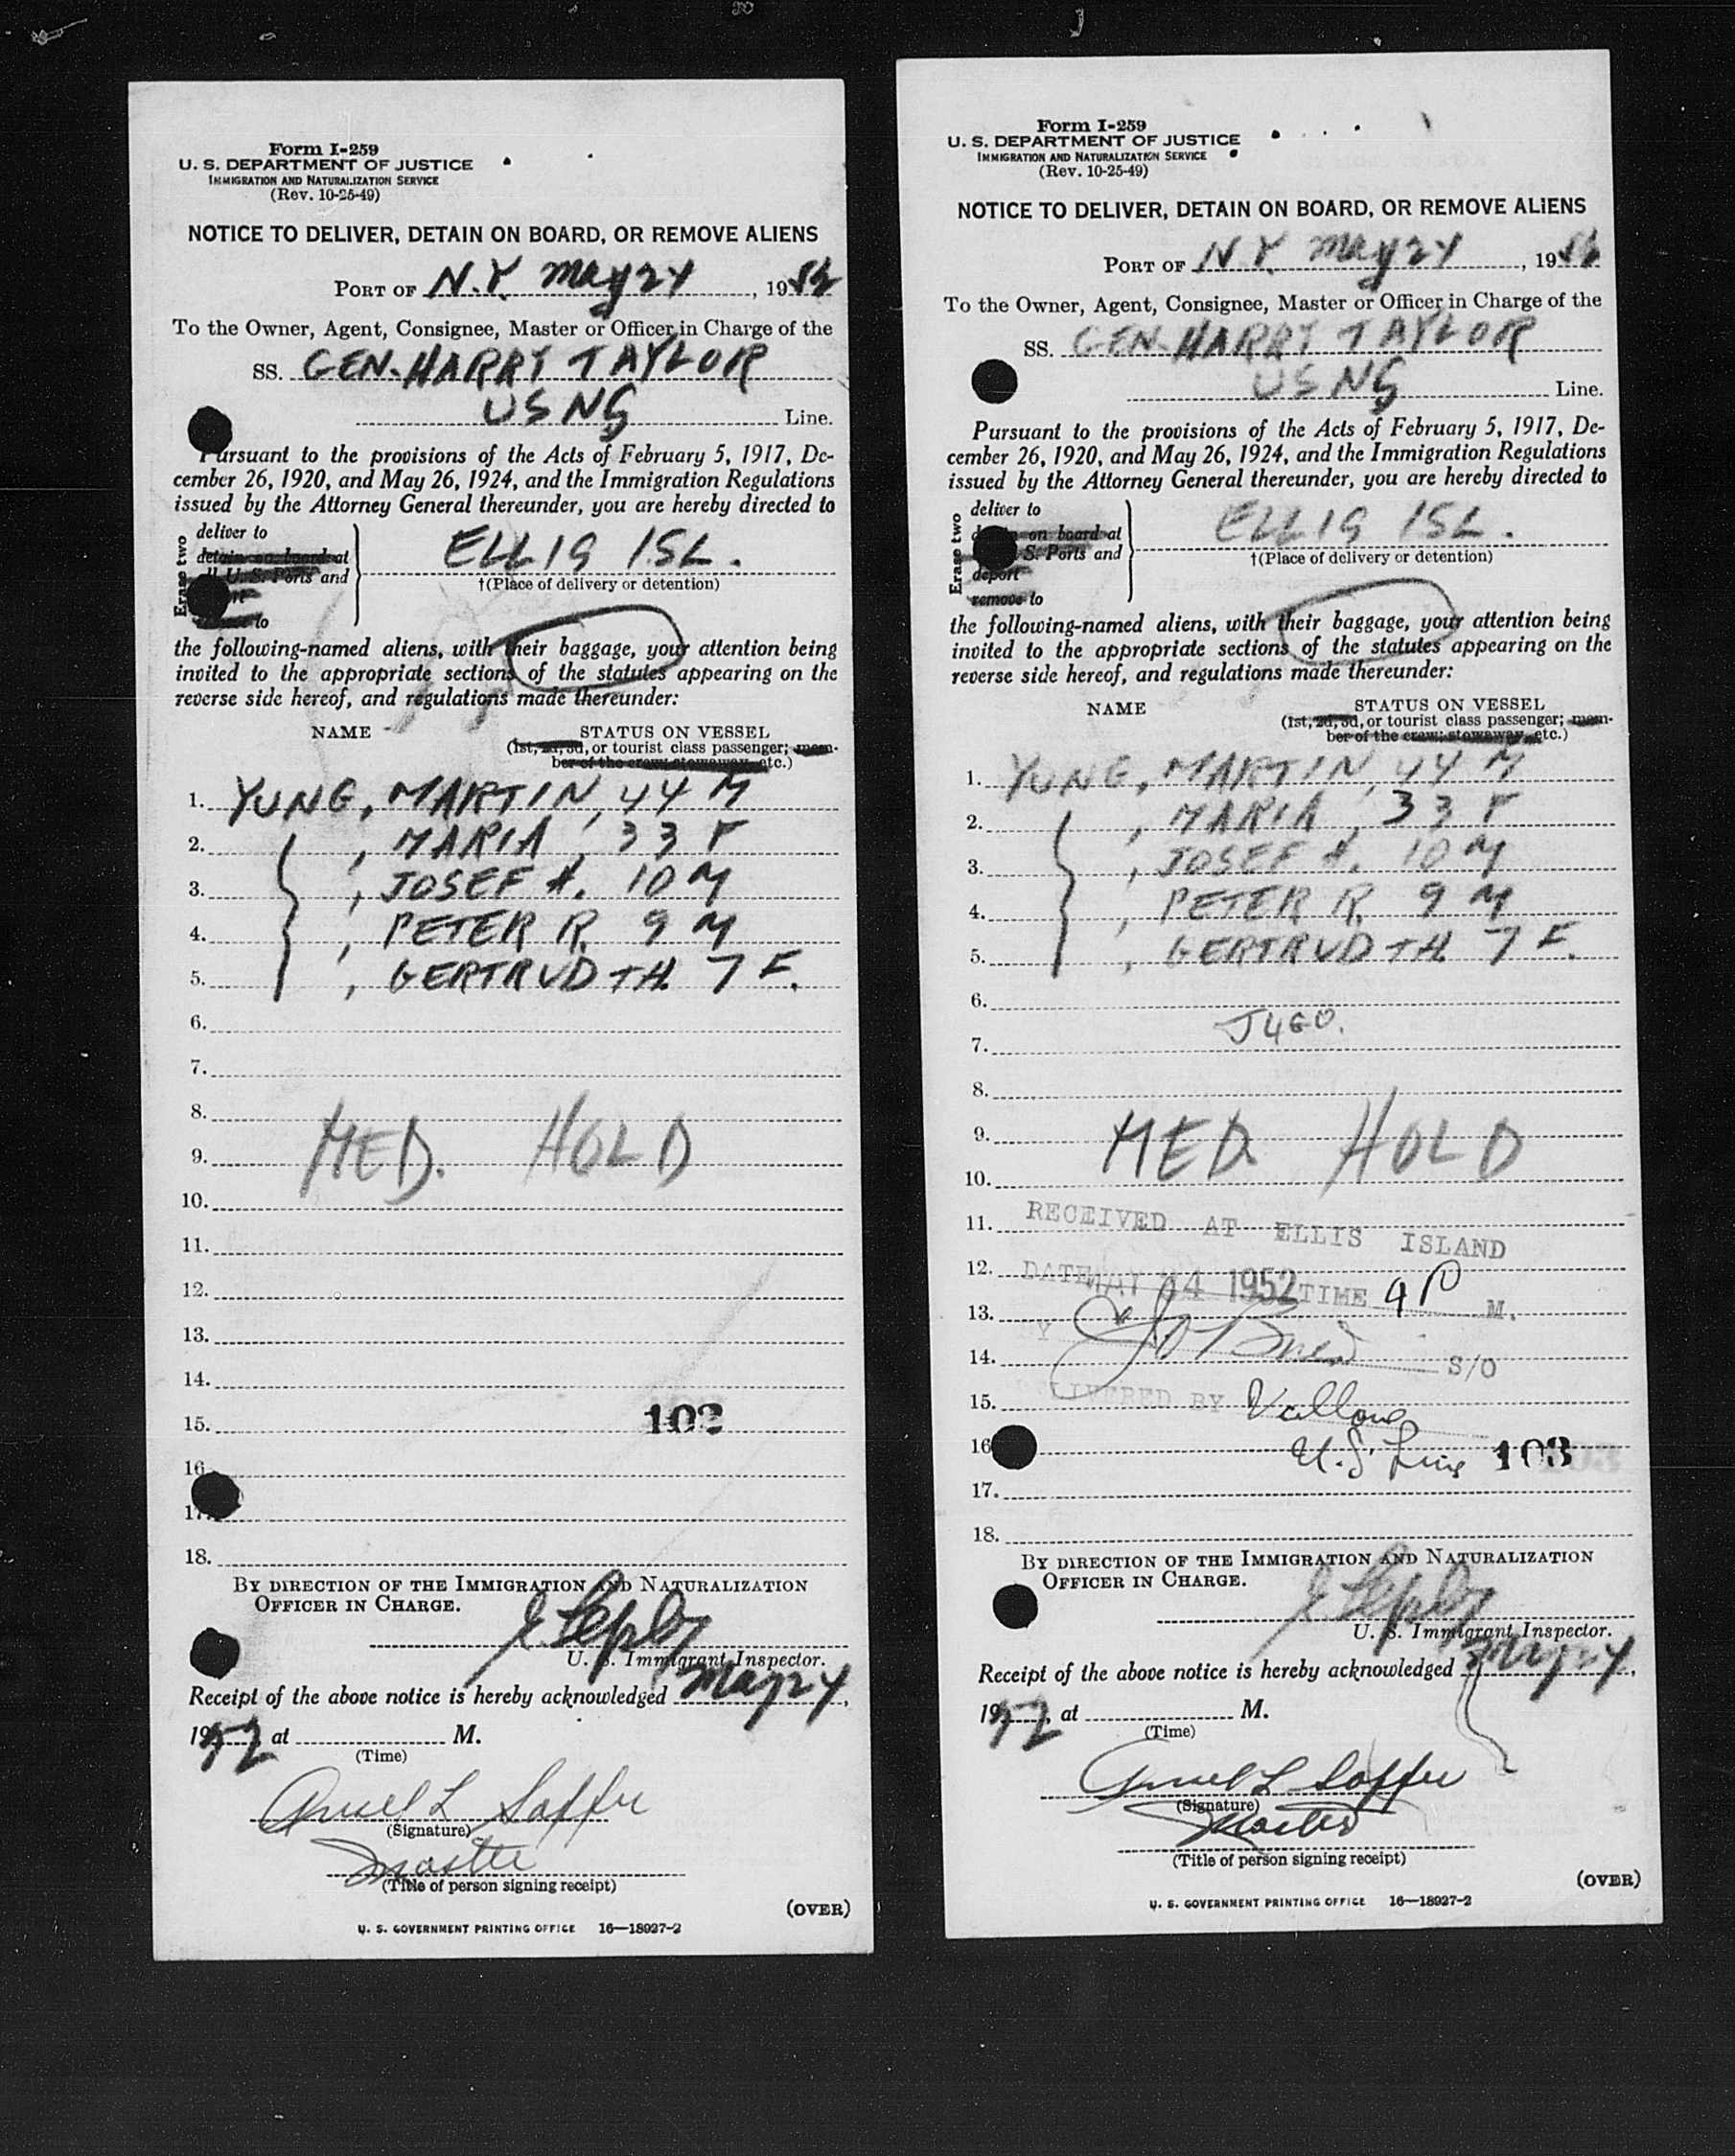 Form I-259
U. S. DEPARTMENT OF JUSTICE
IMMIGRATION AND NATURALIZATION SERVICE
(Rev. 10-25-49)
NOTICE TO DELIVER, DETAIN ON BOARD, OR REMOVE ALIENS
PORT OF N.Y. May 24, 1952
To the Owner, Agent, Consignee, Master or Officer in Charge of the
SS. GEN. HARRY TAYLOR
USNS Line.
Pursuant to the provisions of the Acts of February 5, 1917, De-
cember 26, 1920, and May 26, 1924, and the Immigration Regulations
issued by the Attorney General thereunder, you are hereby directed to
Erase two
deliver to
detain on board at
U. S. Ports and
to
ELLIS ISL.
†(Place of delivery or detention)
the following-named aliens, with their baggage, your attention being
invited to the appropriate sections of the statutes appearing on the
reverse side hereof, and regulations made thereunder:
NAME STATUS ON VESSEL
(1st, 2d, 3d, or tourist class passenger; mem-
ber of the crew; stowaway, etc.)
1. YUNG, MARTIN, 44 M
2. , MARIA, 33 F
3. , JOSEF H. 10 M
4. , PETER R. 9 M
5. , GERTRUD TH. 7 F.
6.
7.
8.
9. MED. HOLD
10.
11.
12.
13.
14.
15. 102
16.
17.
18.
BY DIRECTION OF THE IMMIGRATION AND NATURALIZATION
OFFICER IN CHARGE.
U. S. Immigrant Inspector.
Receipt of the above notice is hereby acknowledged May 24,
1952 at M.
(Time)
(Signature)
Master
(Title of person signing receipt)
(OVER)
U. S. GOVERNMENT PRINTING OFFICE 16—18927-2
Form I-259
U. S. DEPARTMENT OF JUSTICE
IMMIGRATION AND NATURALIZATION SERVICE
(Rev. 10-25-49)
NOTICE TO DELIVER, DETAIN ON BOARD, OR REMOVE ALIENS
PORT OF N.Y. May 24, 1952
To the Owner, Agent, Consignee, Master or Officer in Charge of the
SS. GEN. HARRY TAYLOR
USNS Line.
Pursuant to the provisions of the Acts of February 5, 1917, De-
cember 26, 1920, and May 26, 1924, and the Immigration Regulations
issued by the Attorney General thereunder, you are hereby directed to
Erase two
deliver to
on board at
S. Ports and
deport
remove to
ELLIS ISL.
†(Place of delivery or detention)
the following-named aliens, with their baggage, your attention being
invited to the appropriate sections of the statutes appearing on the
reverse side hereof, and regulations made thereunder:
NAME STATUS ON VESSEL
(1st, 2d, 3d, or tourist class passenger; mem-
ber of the crew; stowaway, etc.)
1. YUNG, MARTIN, 44 M
2. , MARIA, 33 F
3. , JOSEF H. 10 M
4. , PETER R. 9 M
5. , GERTRUD TH. 7 F.
6.
7.
8.
9. MED. HOLD
10.
11. RECEIVED AT ELLIS ISLAND
12. DATE MAY 24 1952 TIME 9 P M.
13.
14. S/O
15. DELIVERED BY
16 U.S. Lines 103
17.
18.
BY DIRECTION OF THE IMMIGRATION AND NATURALIZATION
OFFICER IN CHARGE.
U. S. Immigrant Inspector.
Receipt of the above notice is hereby acknowledged May 24,
1952, at M.
(Time)
(Signature)
Master
(Title of person signing receipt)
(OVER)
U. S. GOVERNMENT PRINTING OFFICE 16—18927-2